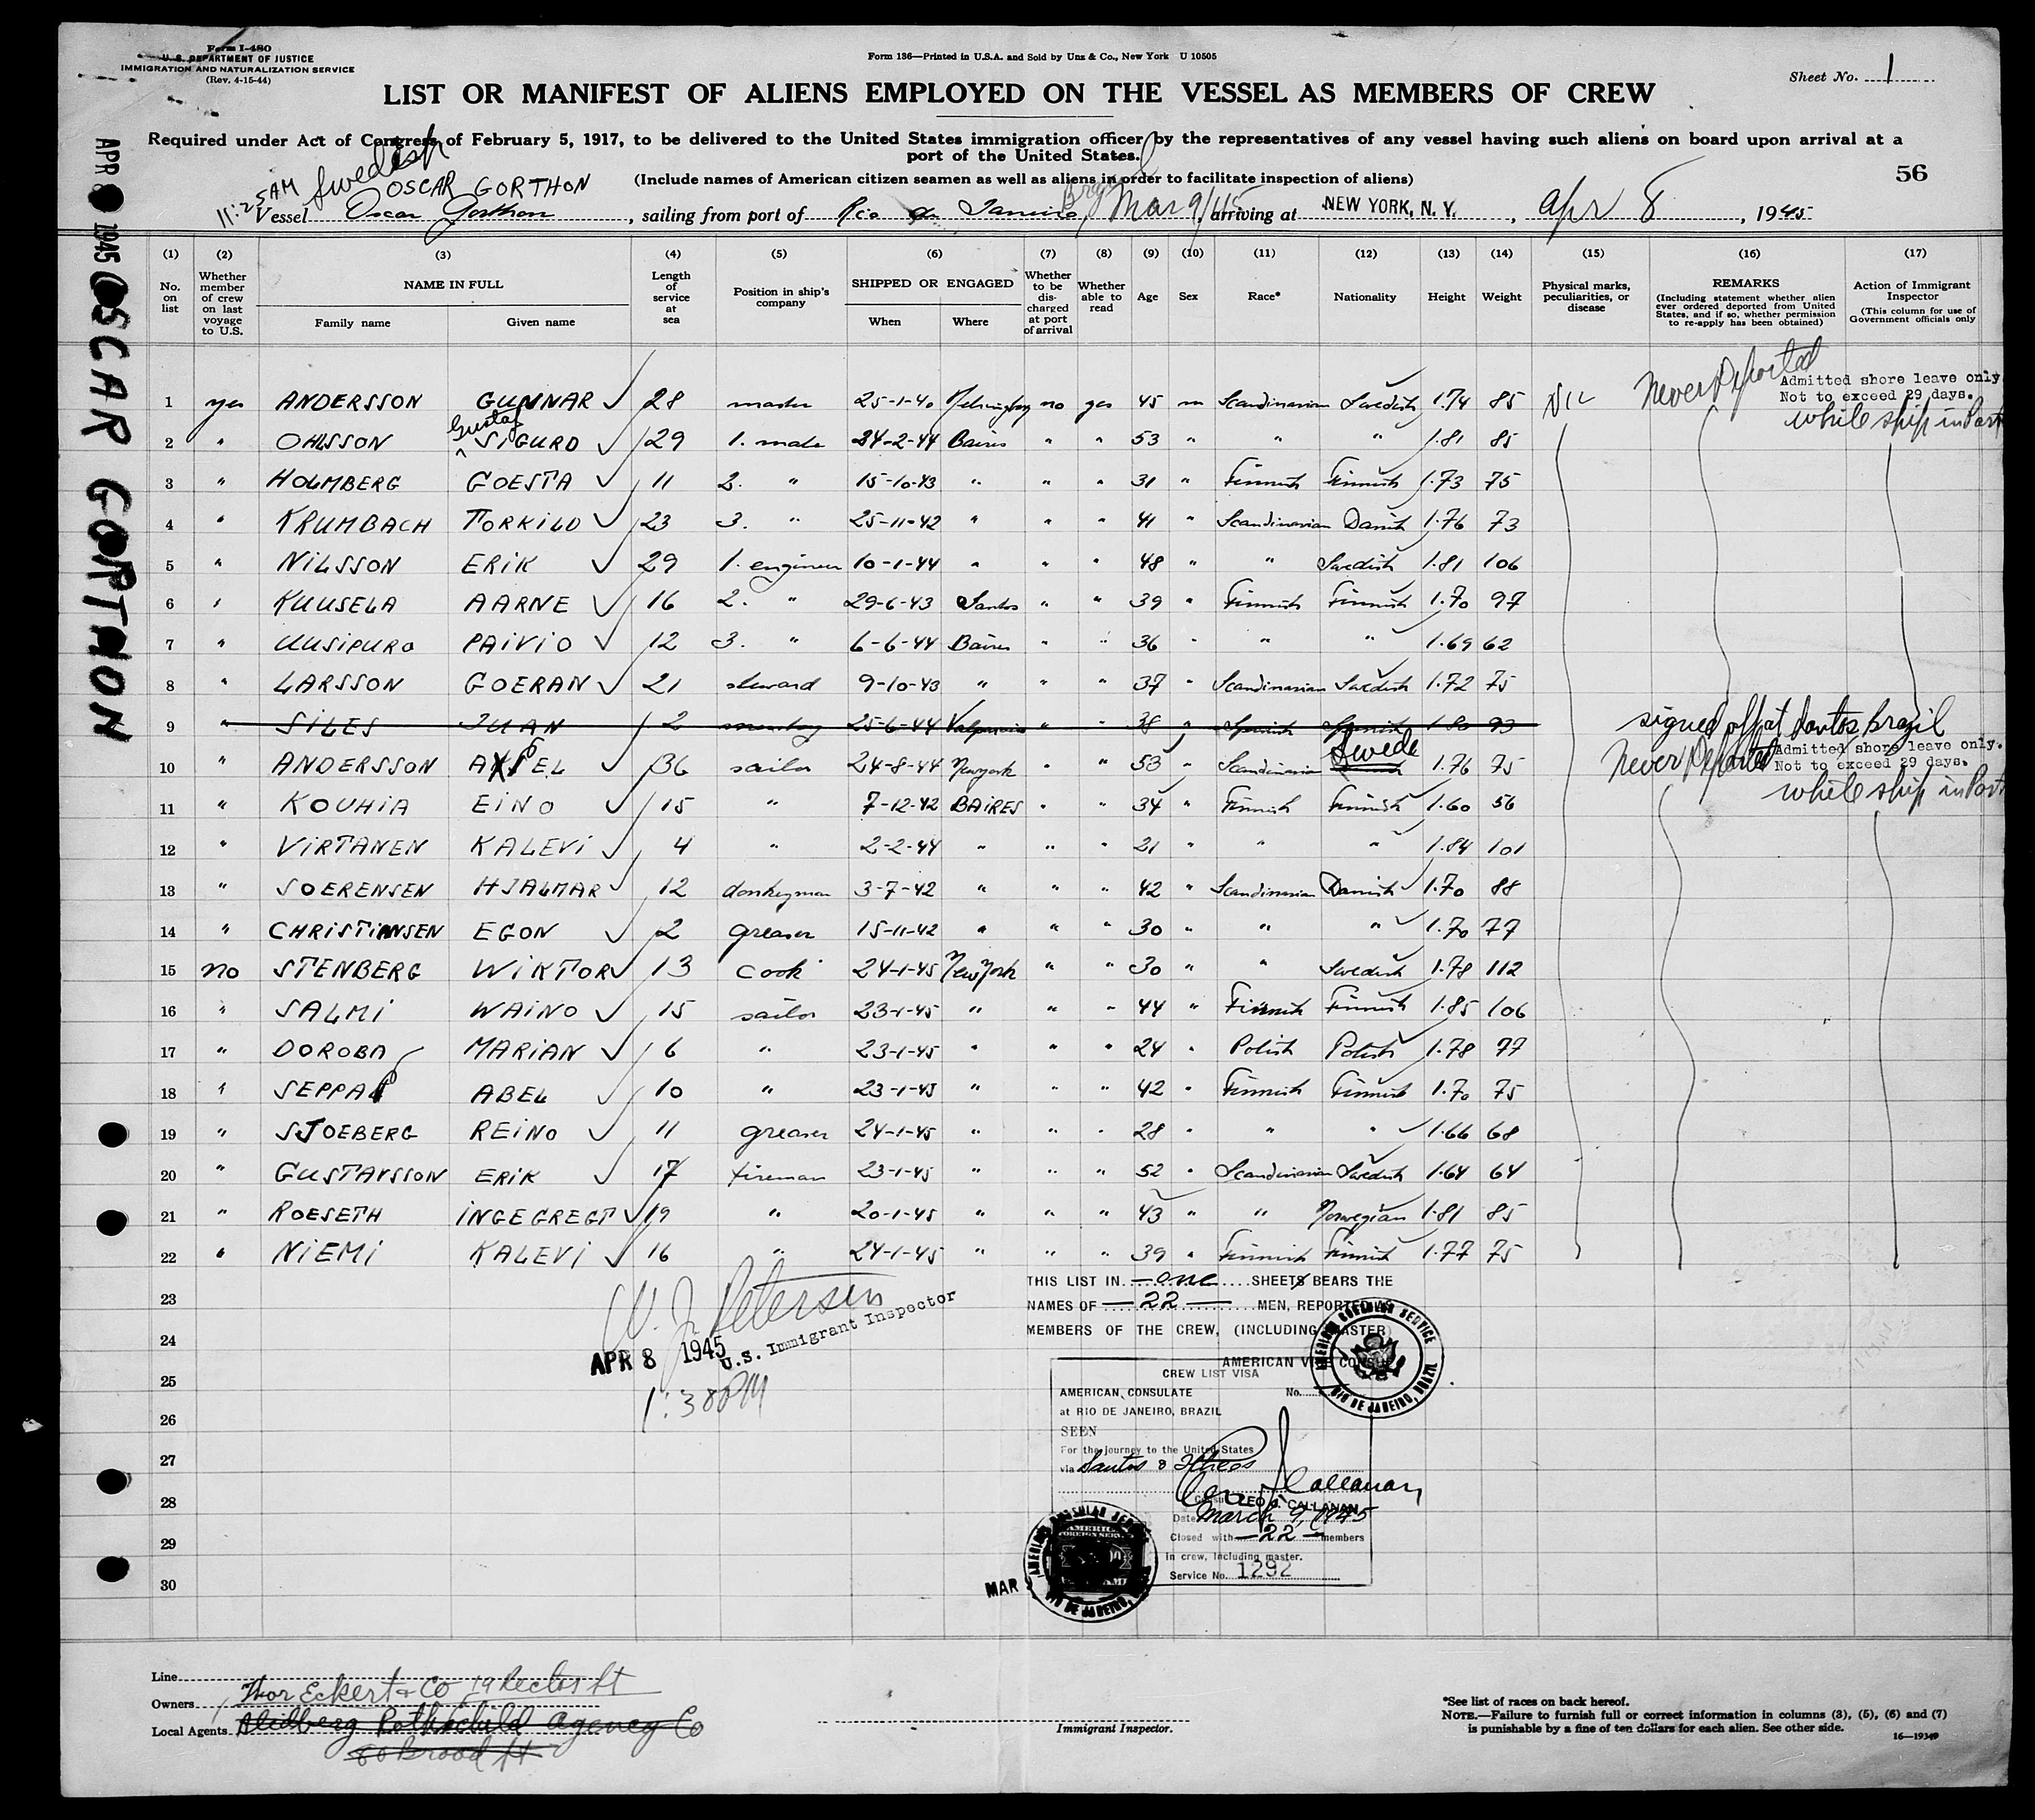 Form I-480
U. S. DEPARTMENT OF JUSTICE
IMMIGRATION AND NATURALIZATION SERVICE
(Rev. 4-15-44)
Form 136—Printed in U.S.A. and Sold by Unz & Co., New York U 10505
Sheet No. 1
LIST OR MANIFEST OF ALIENS EMPLOYED ON THE VESSEL AS MEMBERS OF CREW
Required under Act of Congress of February 5, 1917, to be delivered to the United States immigration officer by the representatives of any vessel having such aliens on board upon arrival at a
port of the United States.
(Include names of American citizen seamen as well as aliens in order to facilitate inspection of aliens)
56
11:25 AM Swedish OSCAR GORTHON
Vessel Oscar Gorthon, sailing from port of Rio de Janeiro, Brazil Mar 9/45, arriving at NEW YORK, N. Y., Apr 8, 1945
APR 8 1945 OSCAR GORTHON
(1) (2) (3) (4) (5) (6) (7) (8) (9) (10) (11) (12) (13) (14) (15) (16) (17)
No. on list
Whether member of crew on last voyage to U.S.
NAME IN FULL
Family name
Given name
Length of service at sea
Position in ship's company
SHIPPED OR ENGAGED
When
Where
Whether to be discharged at port of arrival
Whether able to read
Age
Sex
Race*
Nationality
Height
Weight
Physical marks, peculiarities, or disease
REMARKS
(Including statement whether alien ever ordered deported from United States, and if so, whether permission to re-apply has been obtained)
Action of Immigrant Inspector
(This column for use of Government officials only
1 yes ANDERSSON GUNNAR 28 master 25-1-40 Helsingborg no yes 45 m Scandinavian Swedish 1.74 85 NIL Never Deported Admitted shore leave only. Not to exceed 29 days. while ship in Port
2 " OHLSSON Gustaf SIGURD 29 1. mate 24-2-44 Baires " " 53 " " " 1.81 85
3 " HOLMBERG GOESTA 11 2. " 15-10-43 " " " 31 " Finnish Finnish 1.73 75
4 " KRUMBACH TORKILD 23 3. " 25-11-42 " " " 41 " Scandinavian Danish 1.76 73
5 " NILSSON ERIK 29 1. engineer 10-1-44 " " " 48 " " Swedish 1.81 106
6 " KUUSELA AARNE 16 2. " 29-6-43 Santos " " 39 " Finnish Finnish 1.70 97
7 " UUSIPURO PAIVIO 12 3. " 6-6-44 Baires " " 36 " " " 1.69 62
8 " LARSSON GOERAN 21 steward 9-10-43 " " " 37 " Scandinavian Swedish 1.72 75
9 " SILES JUAN 2 25-6-44 Valparaiso " " 38 " Spanish Spanish 1.80 93 signed off at Santos, Brazil
10 " ANDERSSON AXEL 36 sailor 24-8-44 Newyork " " 53 " Scandinavian Swede 1.76 75 Never Deported Admitted shore leave only. Not to exceed 29 days. while ship in Port
11 " KOUHIA EINO 15 " 7-12-42 BAIRES " " 34 " Finnish Finnish 1.60 56
12 " VIRTANEN KALEVI 4 " 2-2-44 " " " 21 " " " 1.84 101
13 " SOERENSEN HJALMAR 12 donkeyman 3-7-42 " " " 42 " Scandinavian Danish 1.70 88
14 " CHRISTIANSEN EGON 2 greaser 15-11-42 " " " 30 " " " 1.70 77
15 no STENBERG WIKTOR 13 cook 24-1-45 New York " " 30 " " Swedish 1.78 112
16 " SALMI WAINO 15 sailor 23-1-45 " " " 44 " Finnish Finnish 1.85 106
17 " DOROBA MARIAN 6 " 23-1-45 " " " 24 " Polish Polish 1.78 77
18 " SEPPA ABEL 10 " 23-1-45 " " " 42 " Finnish Finnish 1.70 75
19 " SJOEBERG REINO 11 greaser 24-1-45 " " " 28 " " " 1.66 68
20 " GUSTAVSSON ERIK 17 fireman 23-1-45 " " " 52 " Scandinavian Swedish 1.64 64
21 " ROESETH INGEGREGT 19 " 20-1-45 " " " 43 " " Norwegian 1.81 85
22 " NIEMI KALEVI 16 " 24-1-45 " " " 39 " Finnish Finnish 1.77 75
23
24
25
26
27
28
29
30
W. J. Petersen
U.S. Immigrant Inspector
APR 8 1945
1:38PM
THIS LIST IN —one SHEETS BEARS THE
NAMES OF —22— MEN, REPORTED AS
MEMBERS OF THE CREW, (INCLUDING MASTER)
AMERICAN VICE CONSUL
AMERICAN CONSULAR SERVICE RIO DE JANEIRO, BRAZIL
CREW LIST VISA
AMERICAN CONSULATE No.
at RIO DE JANEIRO, BRAZIL
SEEN
For the journey to the United States
via Santos & Ilheos
Leo J. Callanan
LEO J. CALLANAN
Date March 9, 1945
Closed with —22— members
in crew, including master.
Service No. 1292
AMERICAN CONSULAR SERVICE RIO DE JANEIRO,
MAR
Line
Owners Thor Eckert & Co 19 Rector St
Local Agents Rothschild Agency Co
80 Broad St
Immigrant Inspector.
*See list of races on back hereof.
NOTE.—Failure to furnish full or correct information in columns (3), (5), (6) and (7)
is punishable by a fine of ten dollars for each alien. See other side.
16—19349